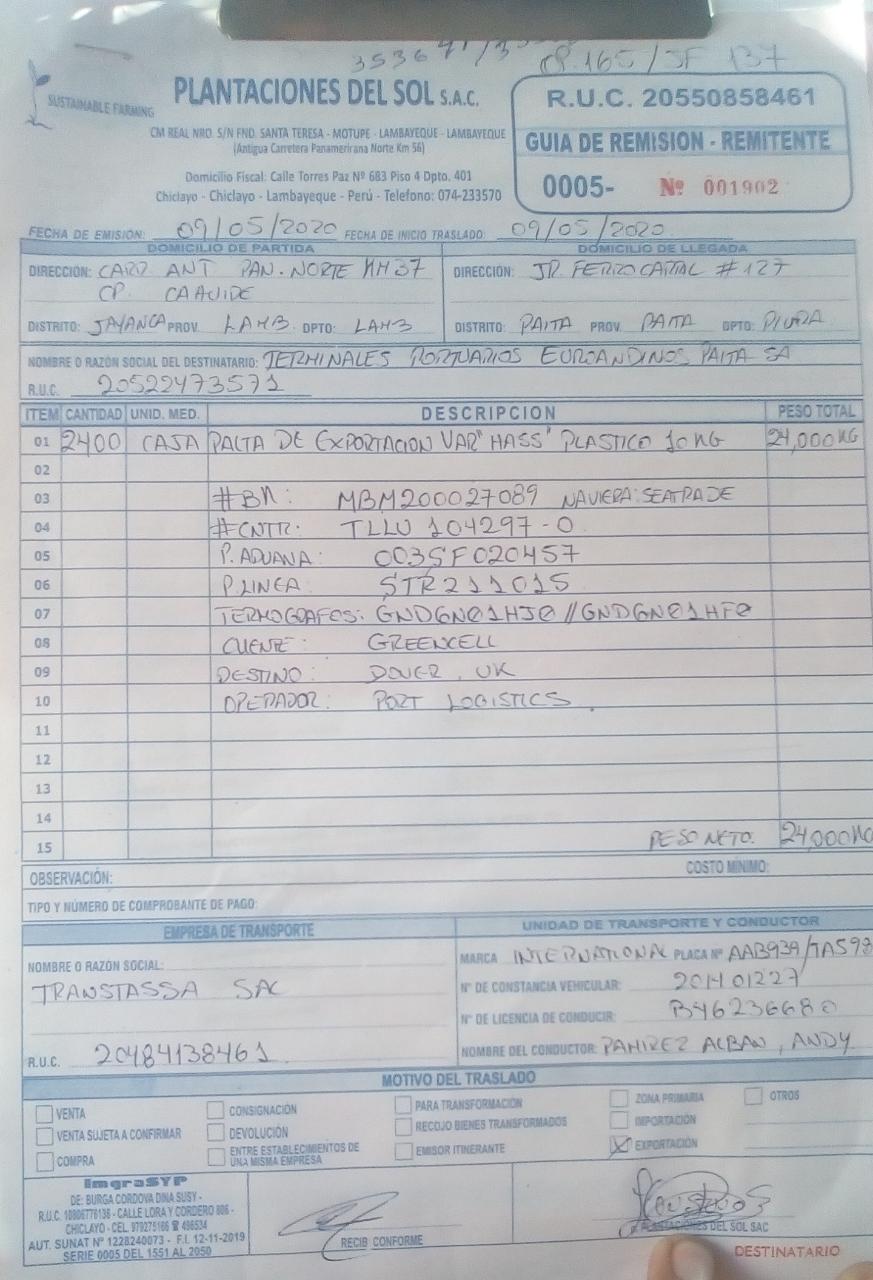 CP. 165/SF 137
SUSTAINABLE FARMING
PLANTACIONES DEL SOL S.A.C.
CM REAL NRO. S/N FND. SANTA TERESA - MOTUPE - LAMBAYEQUE - LAMBAYEQUE
(Antigua Carretera Panamerirana Norte Km 56)
Domicilio Fiscal: Calle Torres Paz Nº 683 Piso 4 Dpto. 401
Chiclayo - Chiclayo - Lambayeque - Perú - Telefono: 074-233570
R.U.C. 20550858461
GUIA DE REMISION - REMITENTE
0005- Nº 001902
FECHA DE EMISIÓN: 09/05/2020 FECHA DE INICIO TRASLADO: 09/05/2020
DOMICILIO DE PARTIDA
DIRECCIÓN: CARR. ANT PAN. NORTE KM 37
CP. CAHUIDE
DISTRITO: JAYANCA PROV. LAMB. DPTO: LAMB
DOMICILIO DE LLEGADA
DIRECCIÓN: JR. FERROCARRIL # 127
DISTRITO: PAITA PROV. PAITA DPTO: PIURA
NOMBRE O RAZÓN SOCIAL DEL DESTINATARIO: TERMINALES PORTUARIOS EUROANDINOS PAITA SA
R.U.C. 20522473571
ITEM CANTIDAD UNID. MED. DESCRIPCION PESO TOTAL
01 2400 CAJA PALTA DE EXPORTACION VAR "HASS" PLASTICO 10 KG 24,000 KG
02
03 #BK: MBM200027089 NAVIERA: SEATRADE
04 #CNTR: TLLU 104297-0
05 P. ADUANA: 003SF020457
06 P. LINEA: STR211015
07 TERMOGRAFOS: GNDGN01HJ0 // GNDGN01HF0
08 CLIENTE: GREENCELL
09 DESTINO: DOVER, UK
10 OPERADOR: PORT LOGISTICS.
11
12
13
14
15 PESO NETO: 24,000 KG
OBSERVACIÓN: COSTO MÍNIMO:
TIPO Y NÚMERO DE COMPROBANTE DE PAGO:
EMPRESA DE TRANSPORTE
NOMBRE O RAZÓN SOCIAL:
TRANSTASSA SAC
R.U.C. 20484138461
UNIDAD DE TRANSPORTE Y CONDUCTOR
MARCA INTERNATIONAL PLACA Nº AAB939/
Nº DE CONSTANCIA VEHICULAR: 201401227
Nº DE LICENCIA DE CONDUCIR: B46236680
NOMBRE DEL CONDUCTOR: RAMIREZ ALBAN, ANDY
MOTIVO DEL TRASLADO
VENTA CONSIGNACIÓN PARA TRANSFORMACIÓN ZONA PRIMARIA OTROS
VENTA SUJETA A CONFIRMAR DEVOLUCIÓN RECOJO BIENES TRANSFORMADOS IMPORTACIÓN
COMPRA ENTRE ESTABLECIMIENTOS DE UNA MISMA EMPRESA EMISOR ITINERANTE X EXPORTACIÓN
ImgraSYP
DE: BURGA CORDOVA DINA SUSY -
R.U.C. 10806776136 - CALLE LORA Y CORDERO 806 -
CHICLAYO - CEL. 979275166 ☎ 496534
AUT. SUNAT Nº 1228240073 - F.I. 12-11-2019
SERIE 0005 DEL 1551 AL 2050
RECIB CONFORME
PLANTACIONES DEL SOL SAC
DESTINATARIO